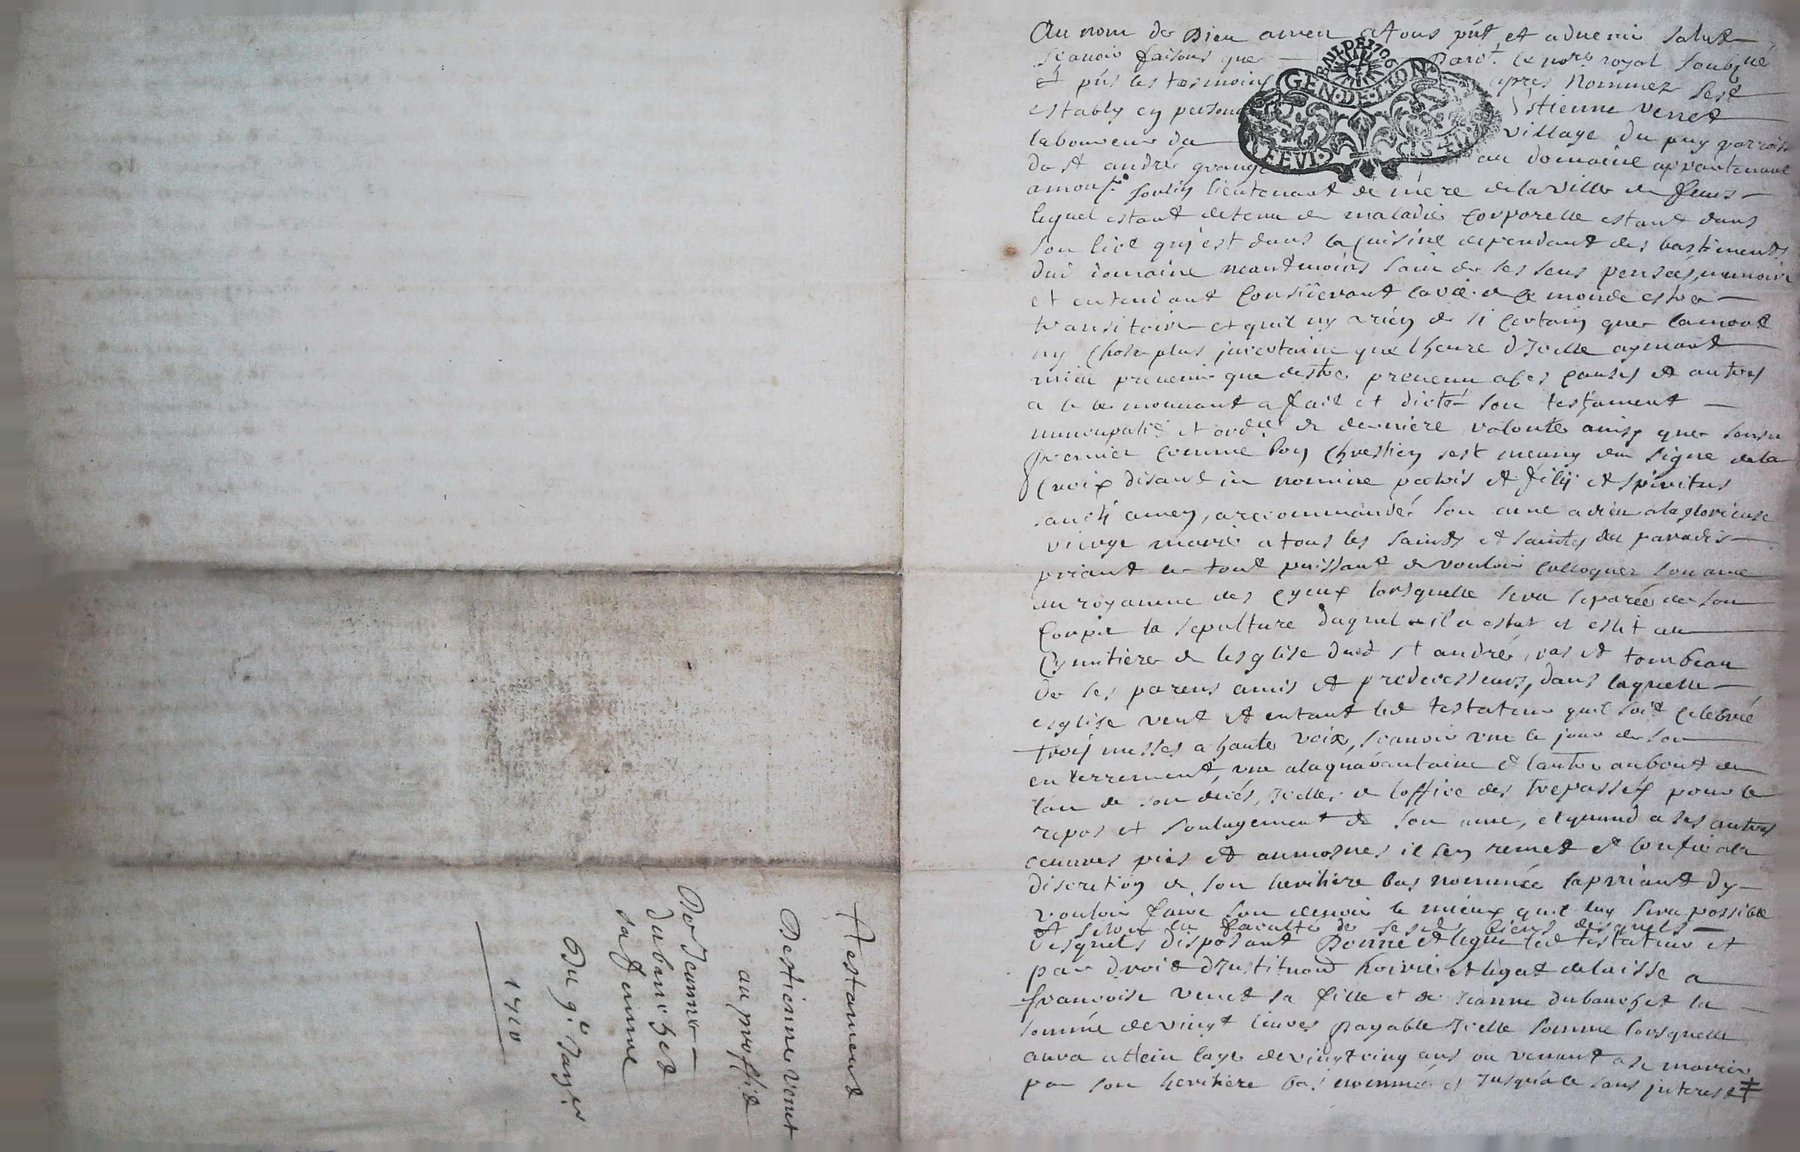 Au nom de Dieu amen atous pñt et advenir salut
sçavoir faisons que Pard.t le no.re royal soubz.né
et pñs les tesmoins apres nommez sest
estably en personne Estienne venet
laboureur du village du puy parroisse
de st andré grange au domaine appartenant
a mons.r lieutenant de mere de la ville de feurs
lequel estant detenu de maladie corporelle estant dans
son lict qui est dans la cuisine dependant des bastiments
dud domaine neantmoins sain de ses sens pensées, memoire
et entendant considerant la vie de ce monde estre
transitoire et quil ny a rien de si certain que la mort
ny chose plus incertaine que l'heure d'Icelle aymant
mieu prevenir que destre prevenu a ces causes et autres
a le mouvant a fait et dicté son testament
nuncupatif et ord.re de derniere volonté ainsy que sensu
premier comme bon Chrestien sest muny du signe de la
Croix disant in nomine patris et filij et spiritus
sancti amen, a recommandé son ame a dieu ala glorieuse
vierge marie a tous les saints et saintes du paradis
priant le tout puissant de vouloir colloquer son ame
au royaume des cyeux lorsquelle sera separée de son
corps la sepulture duquel il a eslut et eslit au
Cymitiere de lesglise dud st andré, vas et tombeau
de ses parens amis et predecesseurs, dans laquelle
esglise veut et entant led testateur quil soit celebré
trois messes a haute voix, scavoir une le jour de son
enterrement, une ala quarantaine et lautre au bout de
lan de son decés, Icelles de loffice des trepassés pour le
repos et soulagement de son ame, et quand a ses autres
œuvres pies et aumosnes il sen remet et confie ala
discretion de son heritiere bas nommée la priant dy
vouloir faire son devoir le mieux quil luy sera possible
et selon la faculté de sesd biens desquels
desquels disposant Donne et legue led testateur et
par droit d'Institution hoirie et legat delaisse a
francoise venet sa fille et de Jeanne dubanchet la
somme de vingt livres payable Icelle somme lorsquelle
aura attein lage de vingt cinq ans ou venant a se marier
par son heritiere bas nommée et Jusqua ce sans interest ‡
BAIL DE 1706
GEN·DE·LION
Testament
Destienne venet
au proffit
De Jeanne
dubanchet
sa femme
Du 9.e Janvier
1710